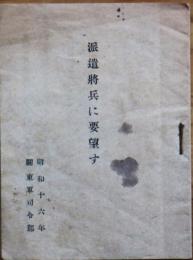 派遣將兵に要望す
昭和十六年
關東軍司令部